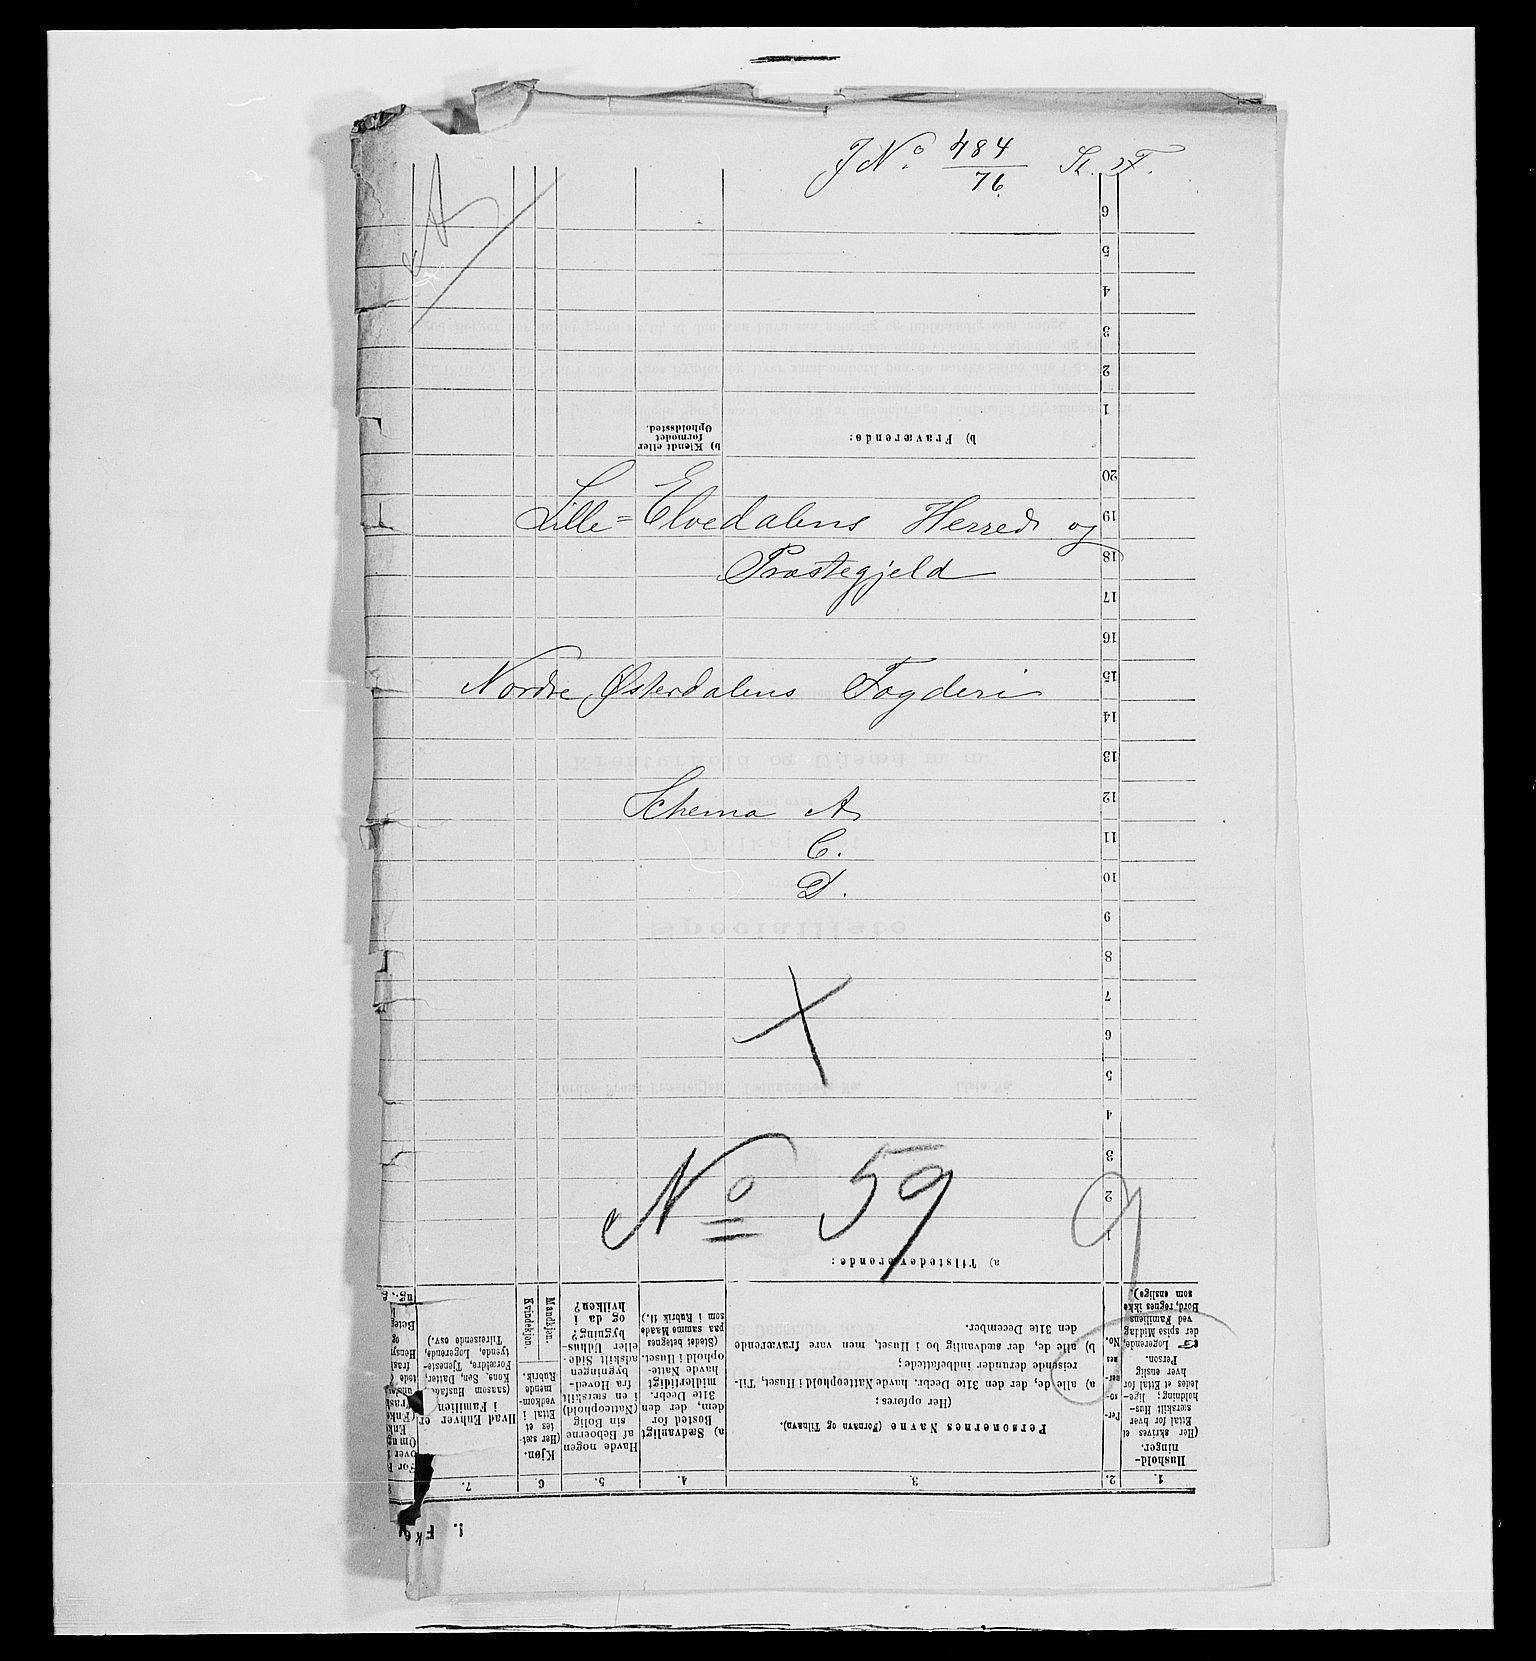 J N° 484/76 St. F.
A
Lille=Elvedalens Herred og
Præstegjeld
Nordre Østerdalens Fogderi
Schema A
C.
D.
X
N° 59
9
6
5
4
3
2
1
b) Kjendt eller formodet Opholdssted.
b) Fraværende:
20
19
18
17
16
15
14
13
12
11
10
9
8
7
6
5
4
3
2
1
a) Tilstedeværende:
Husholdninger.
(Her skrives et Ettal for hver særskilt Husholdning; ligeledes et Ettal for hver enslig Person.
Logerende, der spise Middag ved Familiens Bord, regnes ikke som enslige).
Personernes No.
Personernes Navne (Fornavn og Tilnavn).
(Her opføres:
a) alle de, der den 31te Decbr. havde Natteophold i Huset, Tilreisende derunder indbefattede;
b) alle de, der sædvanlig bo i Huset, men vare fraværende den 31te December.
a) Sædvanligt Bosted for dem, der den 31te Decbr. midlertidigt havde Natteophold i Huset.
(Stedet betegnes paa samme Maade som i Rubrik 11.)
Havde nogen af Beboerne sin Bolig (Natteophold) i en særskilt fra Hovedbygningen adskilt Sidebygning? eller Udhus og i da hvilken?
Kjøn.
(Her sættes et Ettal i vedkommende Rubrik.
Mandkjøn.
Kvindekjøn.
Hvad Enhver er i Familien
(saasom Husfader, Kone, Søn, Datter, Forældre, Tjenestetyende, Logerende, Tilreisende osv.)
1.
2.
3.
4.
5.
6
7.
Specialliste
Folketal
Kreaturhold og Udsæd m. m.